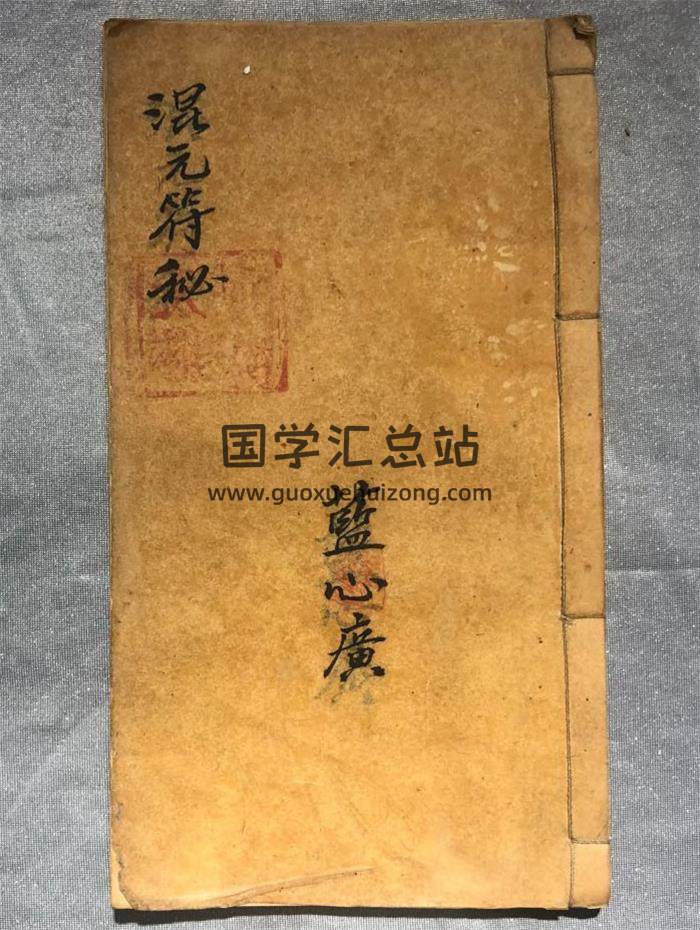 混元符秘
国学汇总站
www.guoxuehuizong.com
藍心廣